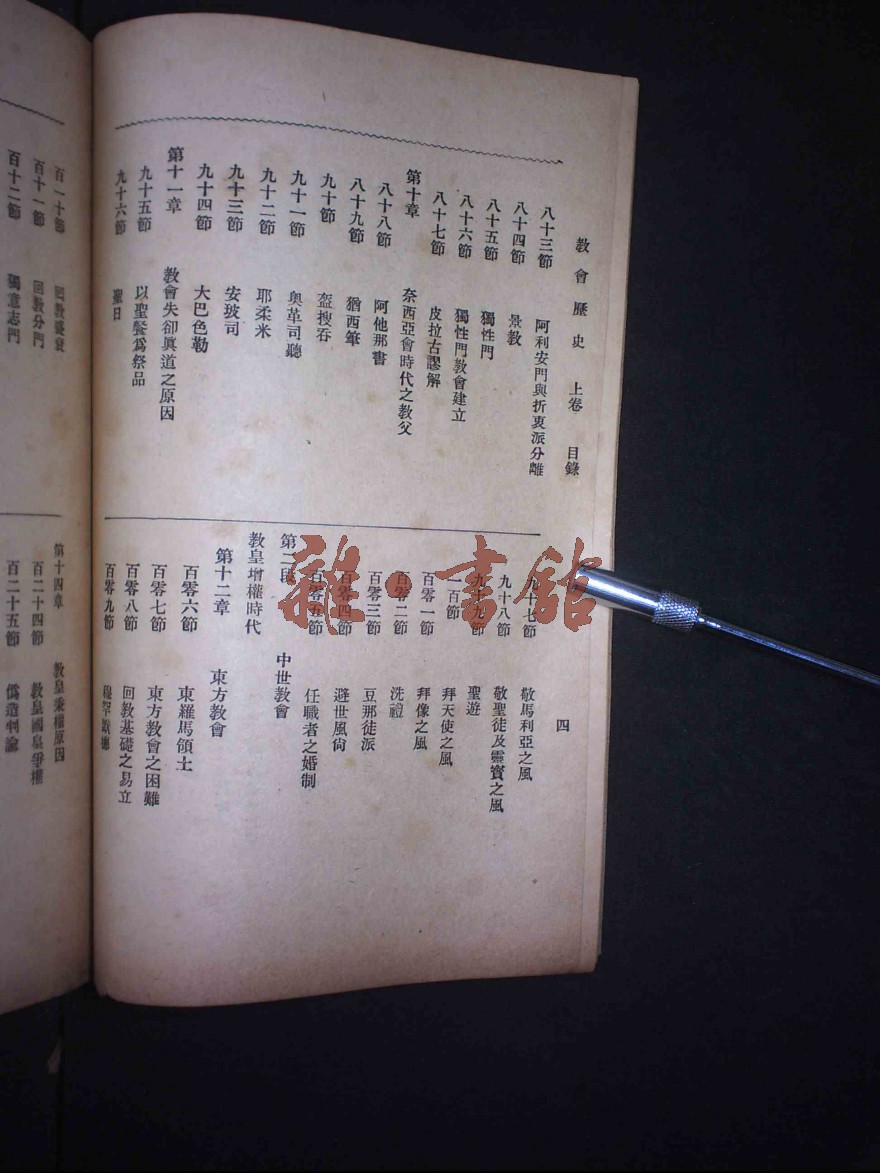 教會歷史 上卷 目錄 四
八十三節 阿利安門與折衷派分離
八十四節 景教
八十五節 獨性門
八十六節 獨性門教會建立
八十七節 皮拉古謬解
第十章 奈西亞會時代之教父
八十八節 阿他那書
八十九節 猶西筆
九十節 盔搜吞
九十一節 奥革司聽
九十二節 耶柔米
九十三節 安玻司
九十四節 大巴色勒
第十一章 教會失卻眞道之原因
九十五節 以聖餐爲祭品
九十六節 聖日
九十七節 敬馬利亞之風
九十八節 敬聖徒及靈寶之風
九十九節 聖遊
一百節 拜天使之風
百零一節 拜像之風
百零二節 洗禮
百零三節 豆那徒派
百零四節 避世風尙
百零五節 任職者之婚制
第二段 中世教會
教皇增權時代
第十二章 東方教會
百零六節 東羅馬領土
百零七節 東方教會之困難
百零八節 回教基礎之易立
百零九節
百一十節 回教盛衰
百十一節 回教分門
百十二節 獨意志門
第十四章 教皇秉權原因
百二十四節 教皇國皇爭權
百二十五節 僞造判論
雜·書館